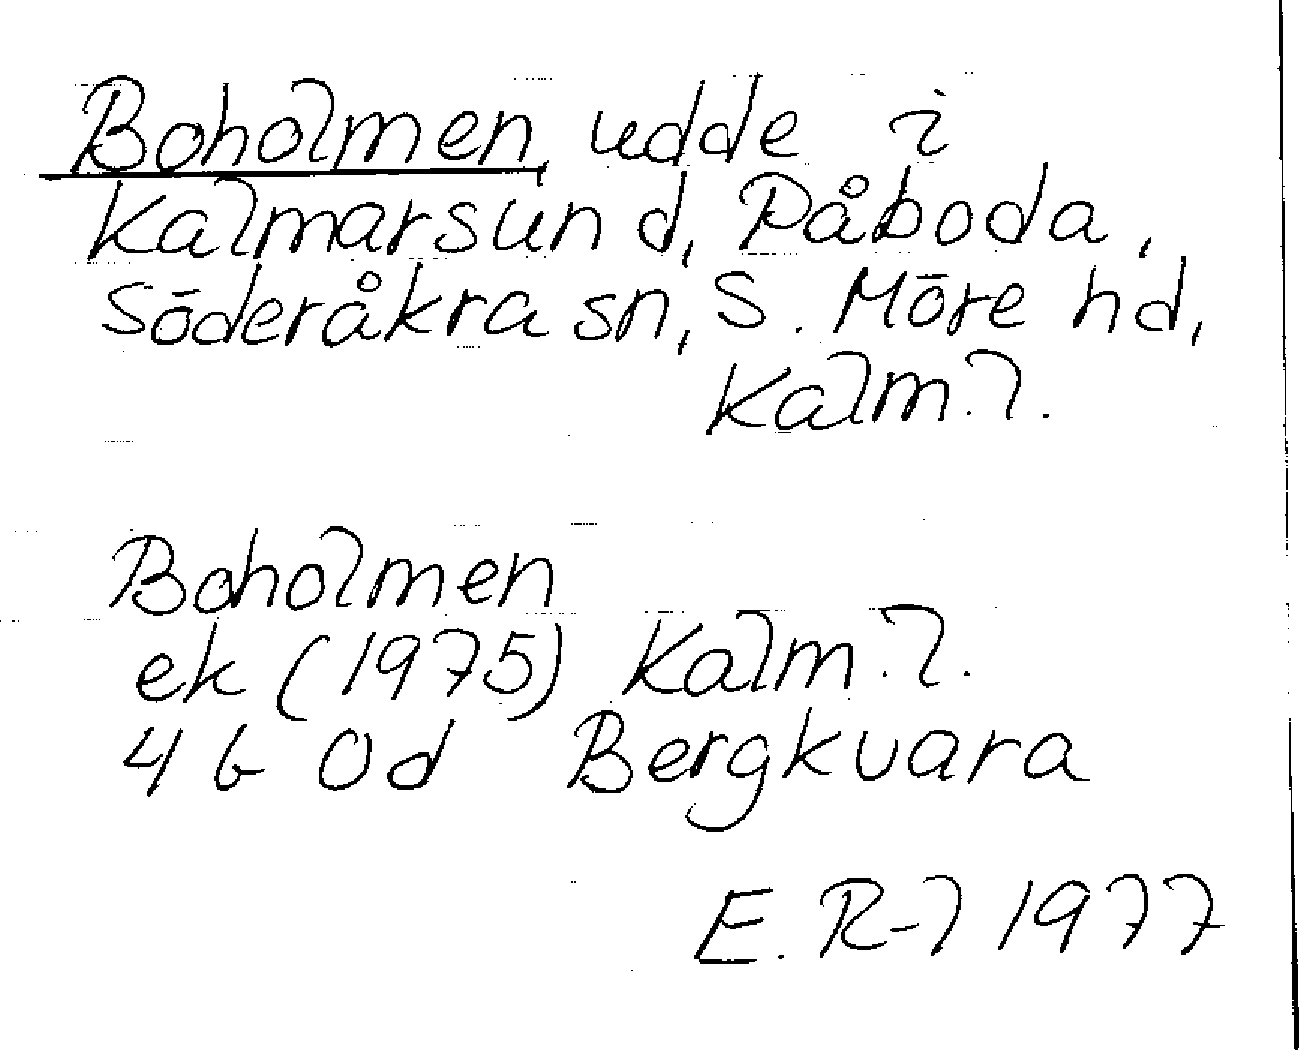 Boholmen, udde i
Kalmarsund, Påboda,
Söderåkra sn, S. Möre hd,
Kalm. l.
Boholmen
ek (1975) Kalm. l.
4 G 0d Bergkvara
E. R-l 1977